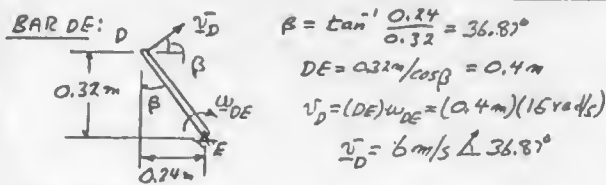 BAR DE:
D
v̄_D
β
0.32 m
β
ω_DE
E
0.24 m
β = tan⁻¹ 0.24/0.32 = 36.87°
DE = 0.32m/cosβ = 0.4 m
v_D = (DE)ω_DE = (0.4 m)(15 rad/s)
v̄_D = 6 m/s ∡ 36.87°